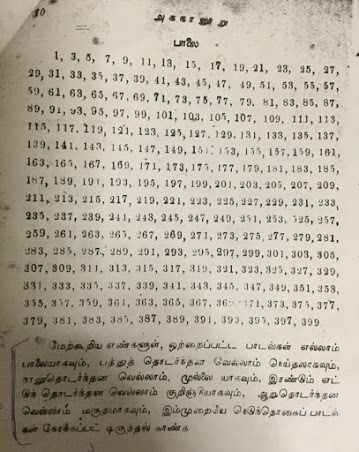 10
அகநானூறு
பாலை
1, 3, 5, 7, 9, 11, 13, 15, 17, 19, 21, 23, 25, 27,
29, 31, 33, 35, 37, 39, 41, 43, 45, 47, 49, 51, 53, 55, 57,
59, 61, 63, 65, 67, 69, 71, 73, 75, 77, 79, 81, 83, 85, 87,
89, 91, 93, 95, 97, 99, 101, 103, 105, 107, 109, 111, 113,
115, 117, 119, 121, 123, 125, 127, 129, 131, 133, 135, 137,
139, 141, 143, 145, 147, 149, 151, 153, 155, 157, 159, 161,
163, 165, 167, 169, 171, 173, 175, 177, 179, 181, 183, 185,
187, 189, 191, 193, 195, 197, 199, 201, 203, 205, 207, 209,
211, 213, 215, 217, 219, 221, 223, 225, 227, 229, 231, 233,
235, 237, 239, 241, 243, 245, 247, 249, 251, 253, 255, 257,
259, 261, 263, 265, 267, 269, 271, 273, 275, 277, 279, 281,
283, 285, 287, 289, 291, 293, 295, 297, 299, 301, 303, 305,
307, 309, 311, 313, 315, 317, 319, 321, 323, 325, 327, 329,
331, 333, 335, 337, 339, 341, 343, 345, 347, 349, 351, 353,
355, 357, 359, 361, 363, 365, 367, 369, 371, 373, 375, 377,
379, 381, 383, 385, 387, 389, 391, 393, 395, 397, 399
மேற்கூறிய எண்களுள், ஒற்றைப்பட்ட பாடல்கள் எல்லாம்
பாலையாகவும், பத்துத் தொடர்ந்தன வெல்லாம் நெய்தலாகவும்,
நாலுதொடர்ந்தன வெல்லாம் முல்லை யாகவும், இரண்டும் எட்
டுந் தொடர்ந்தன வெல்லாம் குறிஞ்சியாகவும், ஆறுதொடர்ந்தன
வெல்லாம் மருதமாகவும், இம்முறையே நெடுந்தொகைப் பாடல்
கள் கோக்கப்பட் டிருத்தல் காண்க